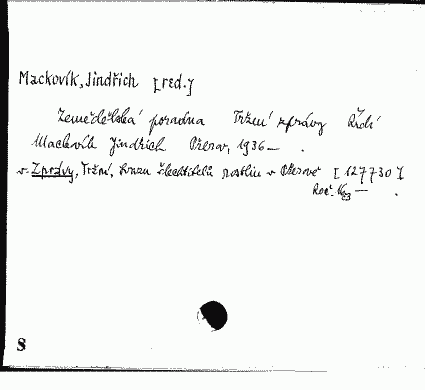 Mackovík, Jindřich [red.]
Zemědělská poradna Tržní zprávy Řídí
Mackovík Jindřich Přerov, 1936— .
v. Zprávy, Tržní, svazu šlechtitelů rostlin v Přerově [127730]
Roč. —
S